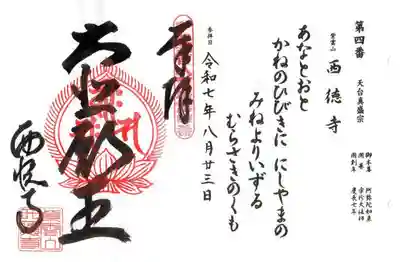 第四番
天台真盛宗
紫雲山
西徳寺
御本尊 阿弥陀如来
開創年 慶長七年
あなとおと
かねのひびきに にしやまの
みねよりいずる
むらさきのくも
参拝日
令和七年八月廿三日
奉拝
西徳寺